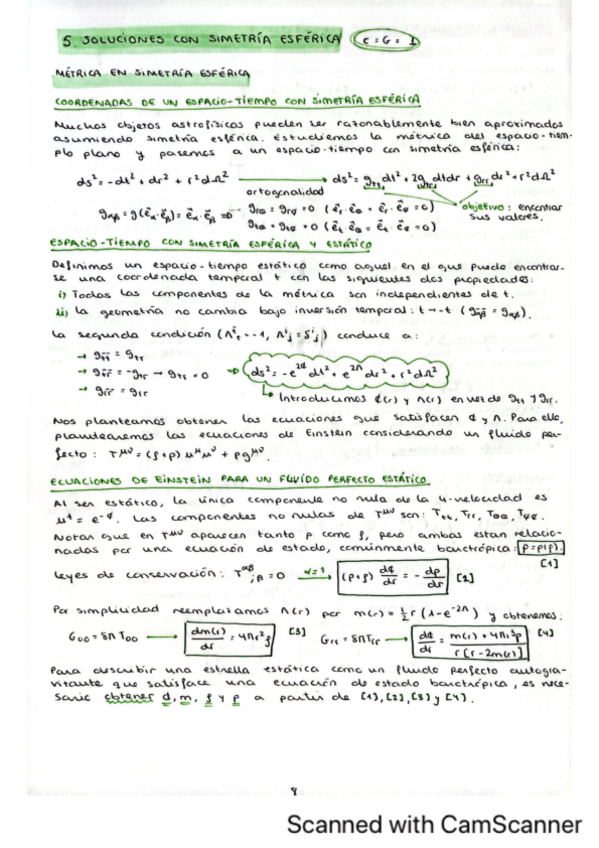 5. SOLUCIONES CON SIMETRÍA ESFÉRICA (c=G=1)
MÉTRICA EN SIMETRÍA ESFÉRICA
COORDENADAS DE UN ESPACIO-TIEMPO CON SIMETRÍA ESFÉRICA
Muchos objetos astrofísicos pueden ser razonablemente bien aproximados
asumiendo simetría esférica. Estudiemos la métrica del espacio-tiem-
po plano y pasemos a un espacio-tiempo con simetría esférica:
ds² = -dt² + dr² + r²dΩ² → ds² = g_tt dt² + 2g_tr dtdr + g_rr dr² + r²dΩ²
ortogonalidad
g_αβ = g(e⃗_α, e⃗_β) = e⃗_α · e⃗_β ⇒ g_rθ = g_rφ = 0 (e⃗_r · e⃗_θ = e⃗_r · e⃗_φ = 0)
g_tθ = g_tφ = 0 (e⃗_t · e⃗_θ = e⃗_t · e⃗_φ = 0)
objetivo: encontrar
sus valores.
ESPACIO-TIEMPO CON SIMETRÍA ESFÉRICA Y ESTÁTICO
Definimos un espacio-tiempo estático como aquel en el que puede encontrar-
se una coordenada temporal t con las siguientes dos propiedades:
i) Todas las componentes de la métrica son independientes de t.
ii) la geometría no cambia bajo inversión temporal: t → -t (g_ᾱβ̄ = g_αβ).
La segunda condición (Λ^t̄_t = -1, Λ^ī_j = δ^i_j) conduce a:
→ g_t̄t̄ = g_tt
→ g_t̄r̄ = -g_tr → g_tr = 0 ⇒ ds² = -e^2Φ dt² + e^2Λ dr² + r²dΩ²
→ g_r̄r̄ = g_rr
Introducimos Φ(r) y Λ(r) en vez de g_tt y g_rr.
Nos planteamos obtener las ecuaciones que satisfacen Φ y Λ. Para ello,
plantearemos las ecuaciones de Einstein considerando un fluido per-
fecto: T^μν = (ρ+p) u^μ u^ν + p g^μν.
ECUACIONES DE EINSTEIN PARA UN FLUIDO PERFECTO ESTÁTICO
Al ser estático, la única componente no nula de la 4-velocidad es
u^t = e^-Φ. Las componentes no nulas de T^μν son: T_tt, T_rr, T_θθ, T_φφ.
Notar que en T^μν aparecen tanto p como ρ, pero ambas están relacio-
nadas por una ecuación de estado, comúnmente barotrópica: p=p(ρ).
[1]
Leyes de conservación: T^αβ_;β = 0 → α=1 (p+ρ) dΦ/dr = - dp/dr [2]
Por simplicidad reemplazamos Λ(r) por m(r) = ½ r (1-e^-2Λ) y obtenemos:
G_00 = 8π T_00 → dm(r)/dr = 4πr²ρ [3] G_rr = 8πT_rr → dΦ/dr = m(r) + 4πr³p / r[r-2m(r)] [4]
Para describir una estrella estática como un fluido perfecto autogra-
vitante que satisface una ecuación de estado barotrópica, es nece-
sario obtener Φ, m, ρ y p a partir de [1], [2], [3] y [4].
8
Scanned with CamScanner